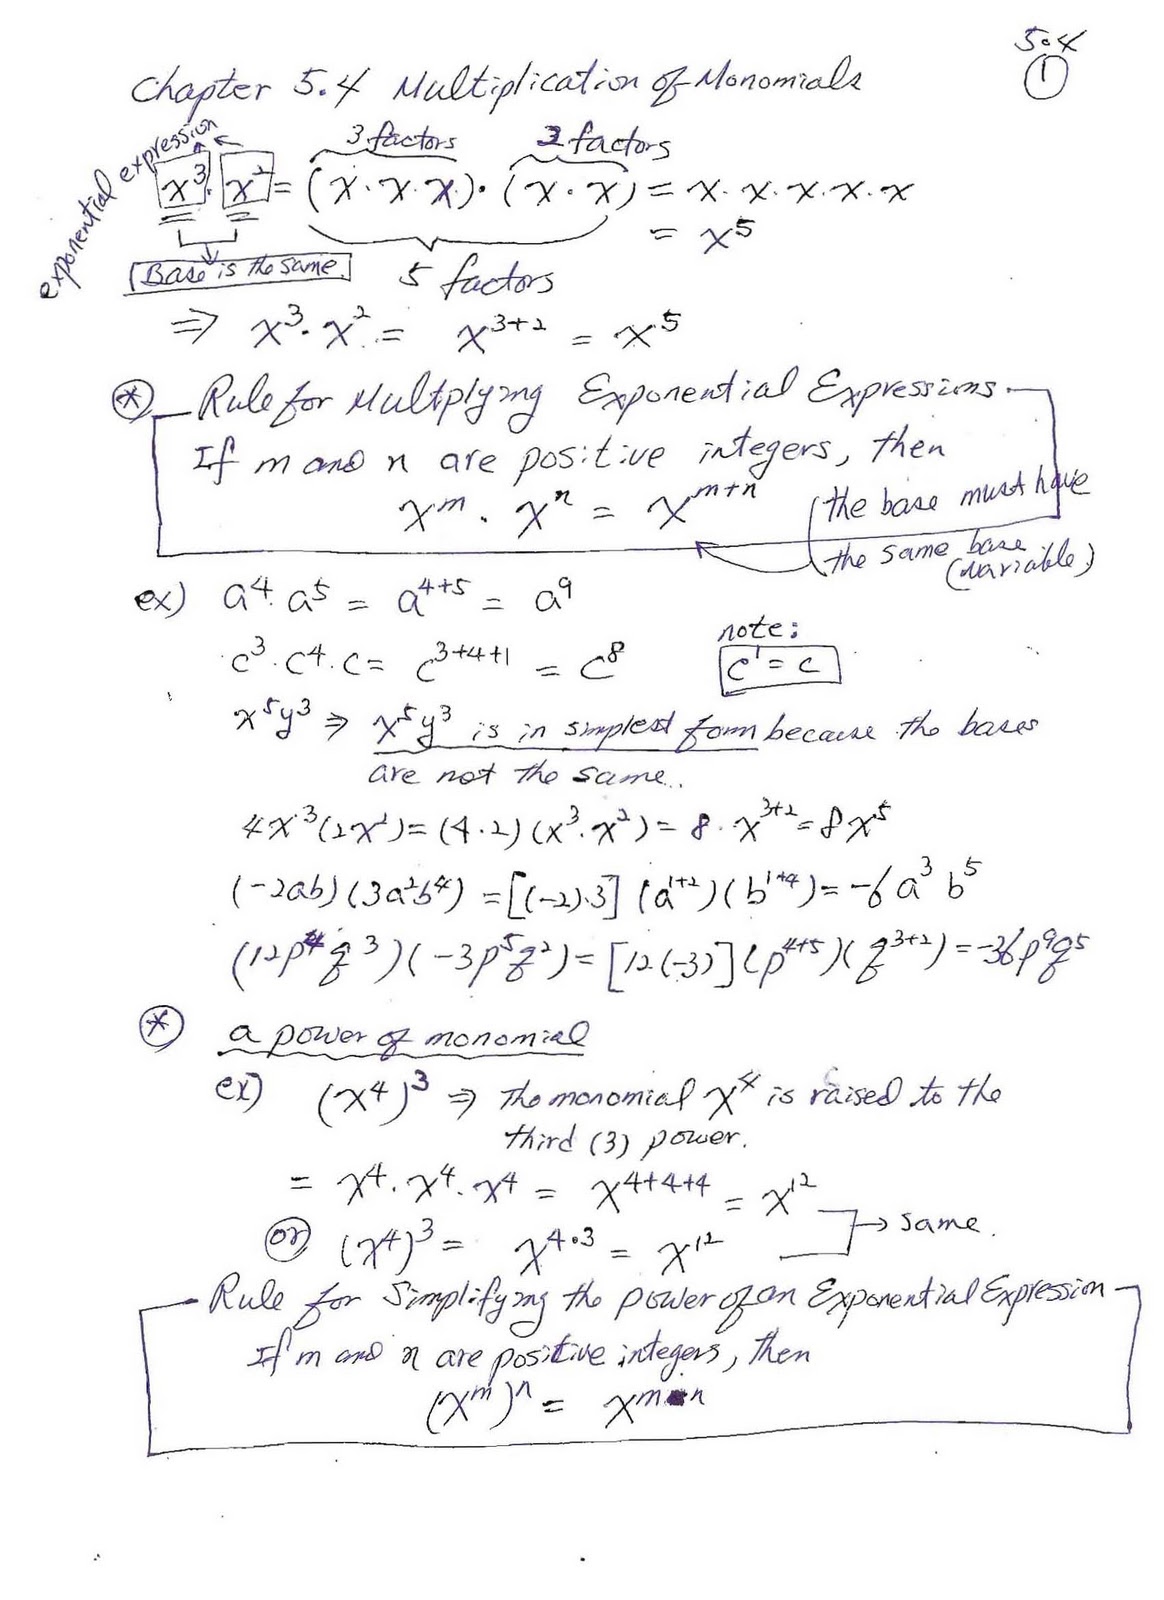 5.4
①
Chapter 5.4 Multiplication of Monomials
exponential expression
3 factors 2 factors
x³ · x² = (x · x · x) · (x · x) = x · x · x · x · x
= x⁵
Base is the same.
5 factors
⇒ x³ · x² = x³⁺² = x⁵
⊛ Rule for Multplying Exponential Expressions
If m and n are positive integers, then
xᵐ · xⁿ = xᵐ⁺ⁿ
(the base must have
the same base
(variable)
ex) a⁴ · a⁵ = a⁴⁺⁵ = a⁹
note:
c³ · c⁴ · c = c³⁺⁴⁺¹ = c⁸
c¹ = c
x⁵y³ ⇒ x⁵y³ is in simplest form because the bases
are not the same.
4x³(2x²) = (4·2)(x³·x²) = 8 · x³⁺² = 8x⁵
(-2ab)(3a²b⁴) = [(-2)·3](a¹⁺²)(b¹⁺⁴) = -6a³b⁵
(12p⁴q³)(-3p⁵q²) = [12(-3)](p⁴⁺⁵)(q³⁺²) = -36p⁹q⁵
⊛ a power of monomial
ex) (x⁴)³ ⇒ the monomial x⁴ is raised to the
third (3) power.
= x⁴ · x⁴ · x⁴ = x⁴⁺⁴⁺⁴ = x¹²
→ same.
or (x⁴)³ = x⁴·³ = x¹²
Rule for Simplifying the power of an Exponential Expression
If m and n are positive integers, then
(xᵐ)ⁿ = xᵐ·ⁿ